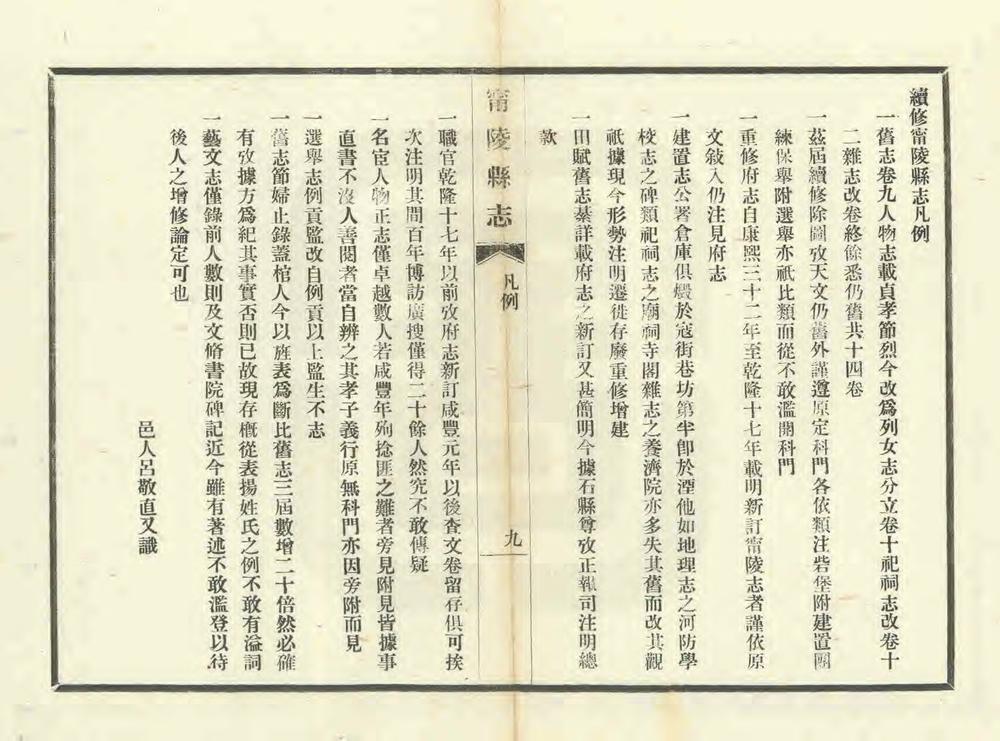 續修甯陵縣志凡例
一舊志卷九人物志載貞孝節烈今改爲列女志分立卷十祀祠志改卷十
二雜志改卷終餘悉仍舊共十四卷
一茲屆續修除圖攷天文仍舊外謹遵原定科門各依類注砦堡附建置團
練保舉附選舉亦祇比類而從不敢濫開科門
一重修府志自康熙三十二年至乾隆十七年載明新訂甯陵志者謹依原
文敍入仍注見府志
一建置志公署倉庫俱燬於寇街巷坊第半卽於湮他如地理志之河防學
校志之碑類祀祠志之廟祠寺閣雜志之養濟院亦多失其舊而改其觀
祇據現今形勢注明遷徙存廢重修增建
一田賦舊志綦詳載府志之新訂又甚簡明今據石縣尊攷正報司注明總
款
甯陵縣志
凡例
九
一職官乾隆十七年以前攷府志新訂咸豐元年以後查文卷留存俱可挨
次注明其間百年博訪廣搜僅得二十餘人然究不敢傳疑
一名宦人物正志僅卓越數人若咸豐年殉捻匪之難者旁見附見皆據事
直書不沒人善閱者當自辨之其孝子義行原無科門亦因旁附而見
一選舉志例貢監改自例貢以上監生不志
一舊志節婦止錄蓋棺人今以旌表爲斷比舊志三屆數增二十倍然必確
有攷據方爲紀其事實否則已故現存槪從表揚姓氏之例不敢有溢詞
一藝文志僅錄前人數則及文脩書院碑記近今雖有著述不敢濫登以待
後人之增修論定可也
邑人呂敬直又識